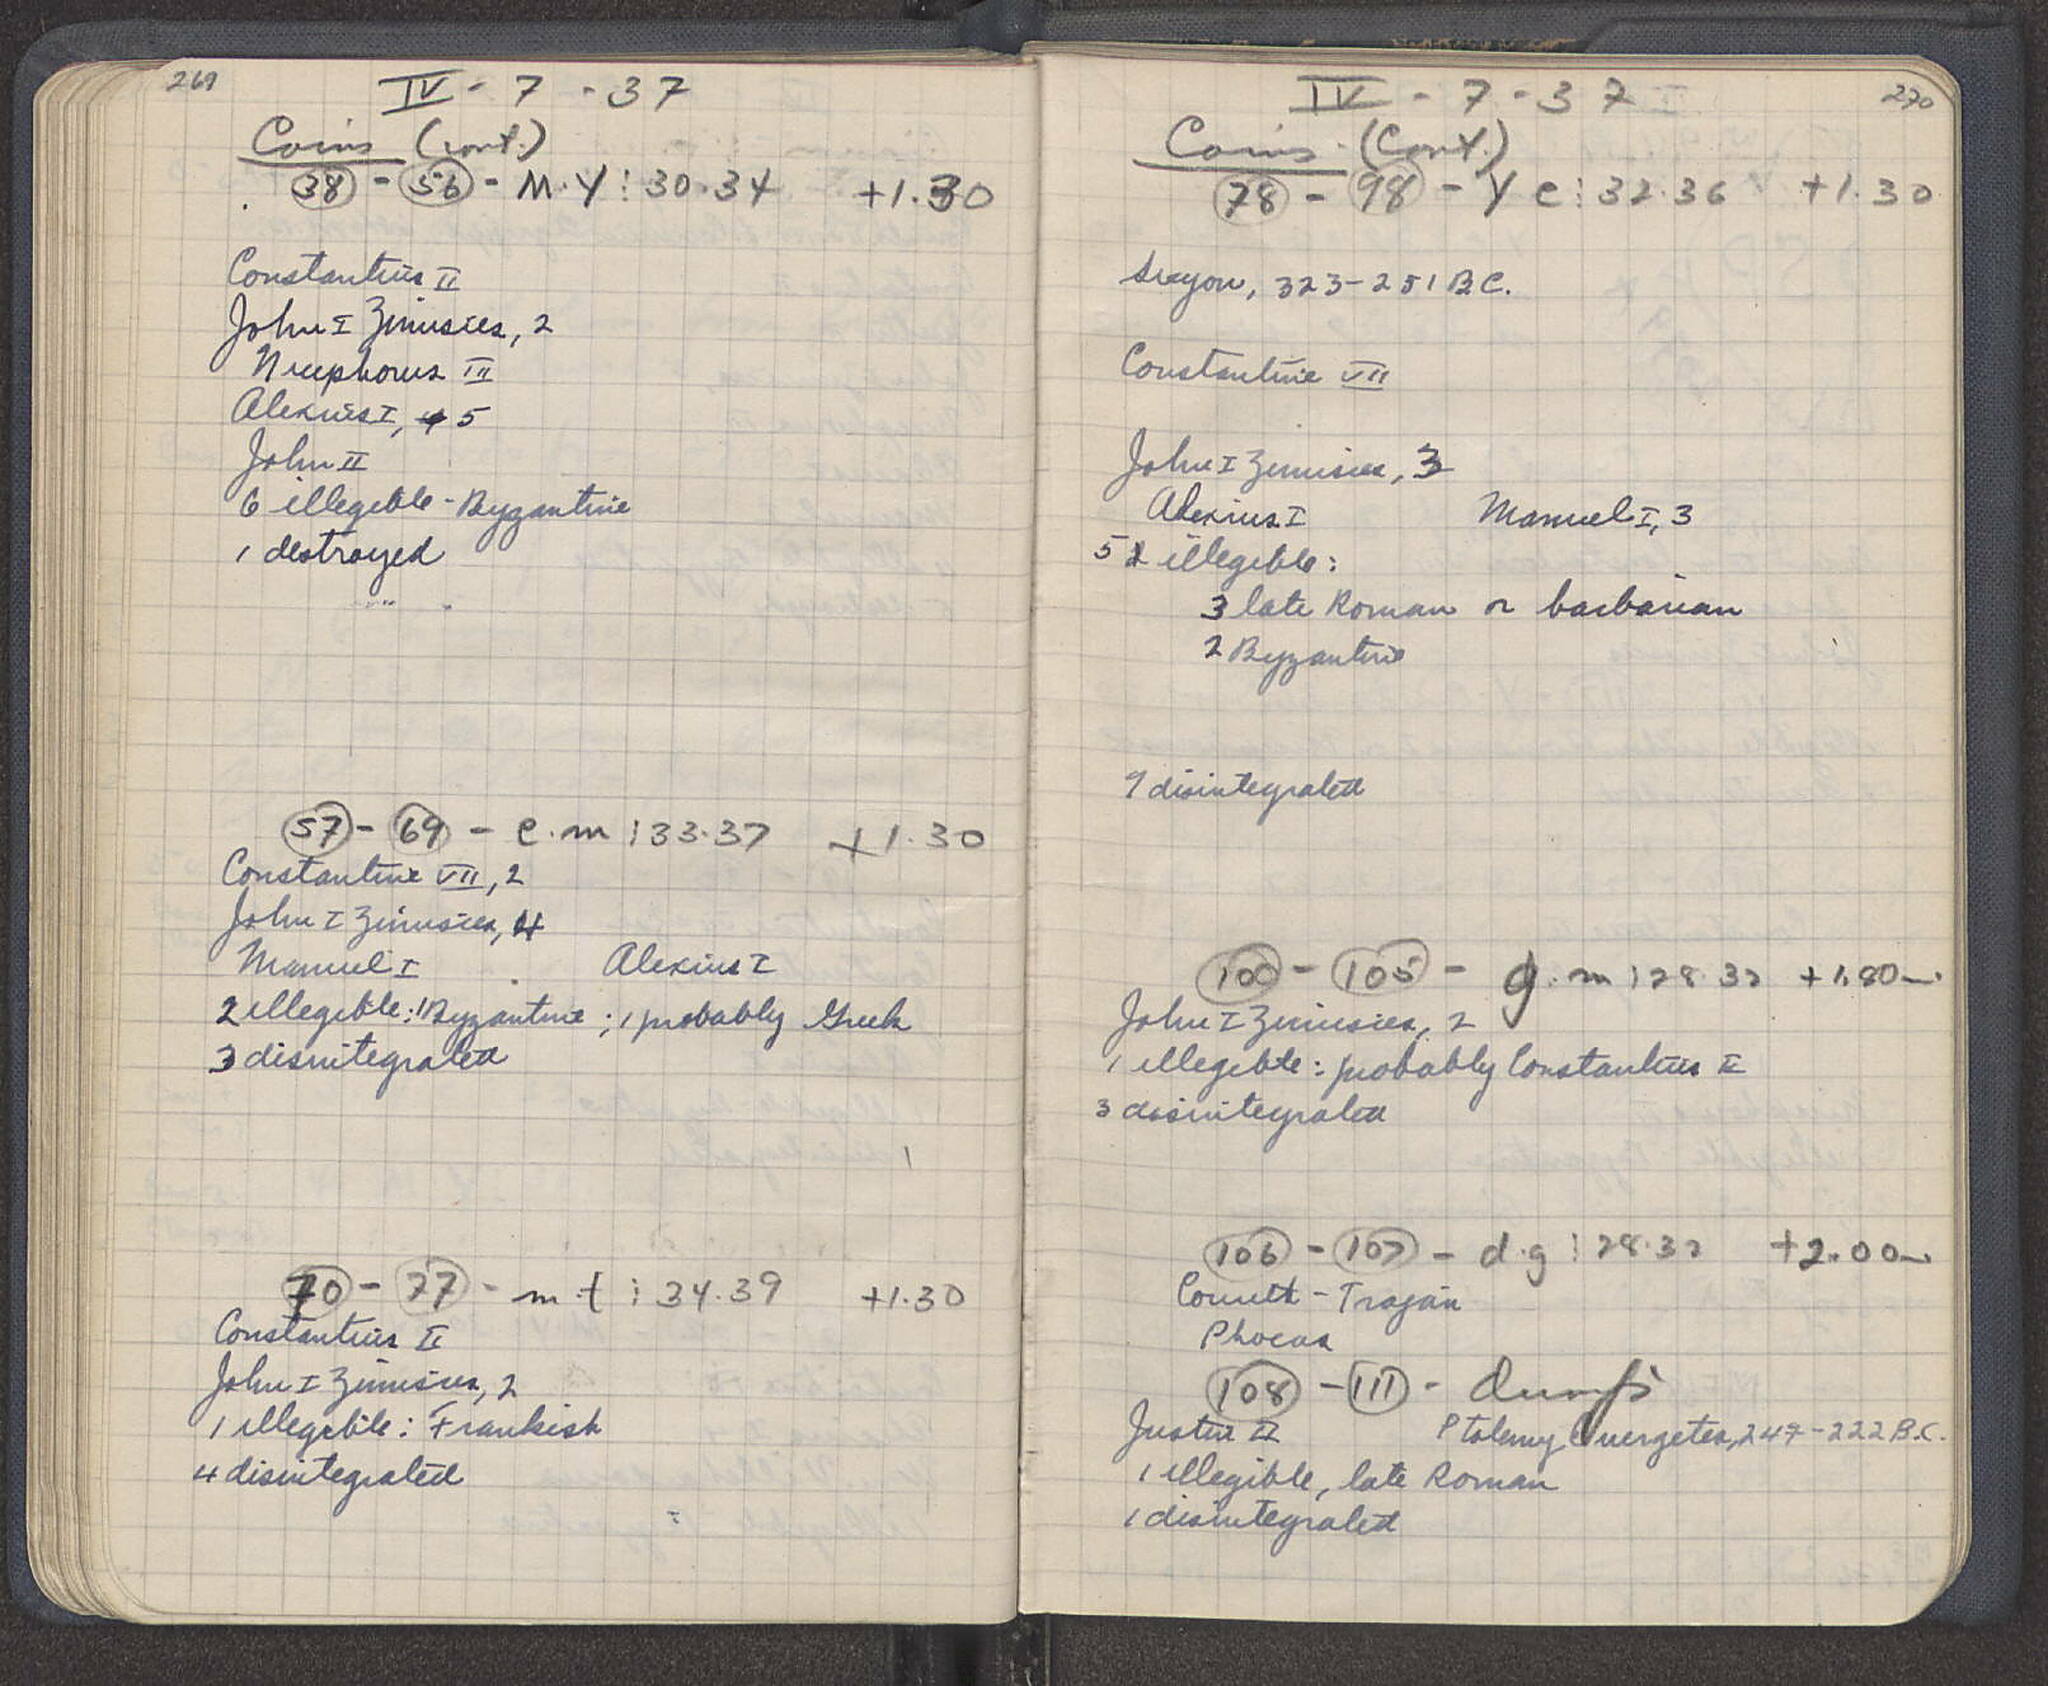 269
IV - 7 - 37
Coins (cont.)
38 - 56 - M.Y : 30.34 +1.30
Constantius II
John I Zimisces, 2
Nicephorus III
Alexius I, 5
John II
6 illegible - Byzantine
1 destroyed
57 - 69 - e.m : 33.37 +1.30
Constantine VII, 2
John I Zimisces, 4
Manuel I Alexius I
2 illegible: 1 Byzantine ; 1 probably Greek
3 disintegrated
70 - 77 - m.t : 34.39 +1.30
Constantius II
John I Zimisces, 2
1 illegible: Frankish
4 disintegrated
270
IV - 7 - 37
Coins (Cont.)
78 - 98 - Y e : 32.36 +1.30
Sicyon, 323-251 B.C.
Constantine VII
John I Zimisces, 3
Alexius I Manuel I, 3
5 illegible:
3 late Roman or barbarian
2 Byzantine
9 disintegrated
100 - 105 - g.m : 28.32 +1.80
John I Zimisces, 2
1 illegible: probably Constantius II
3 disintegrated
106 - 107 - d.g : 28.32 +2.00
Corinth - Trajan
Phocas
108 - 111 - dumps
Justin II Ptolemy Euergetes, 247-222 B.C.
1 illegible, late Roman
1 disintegrated